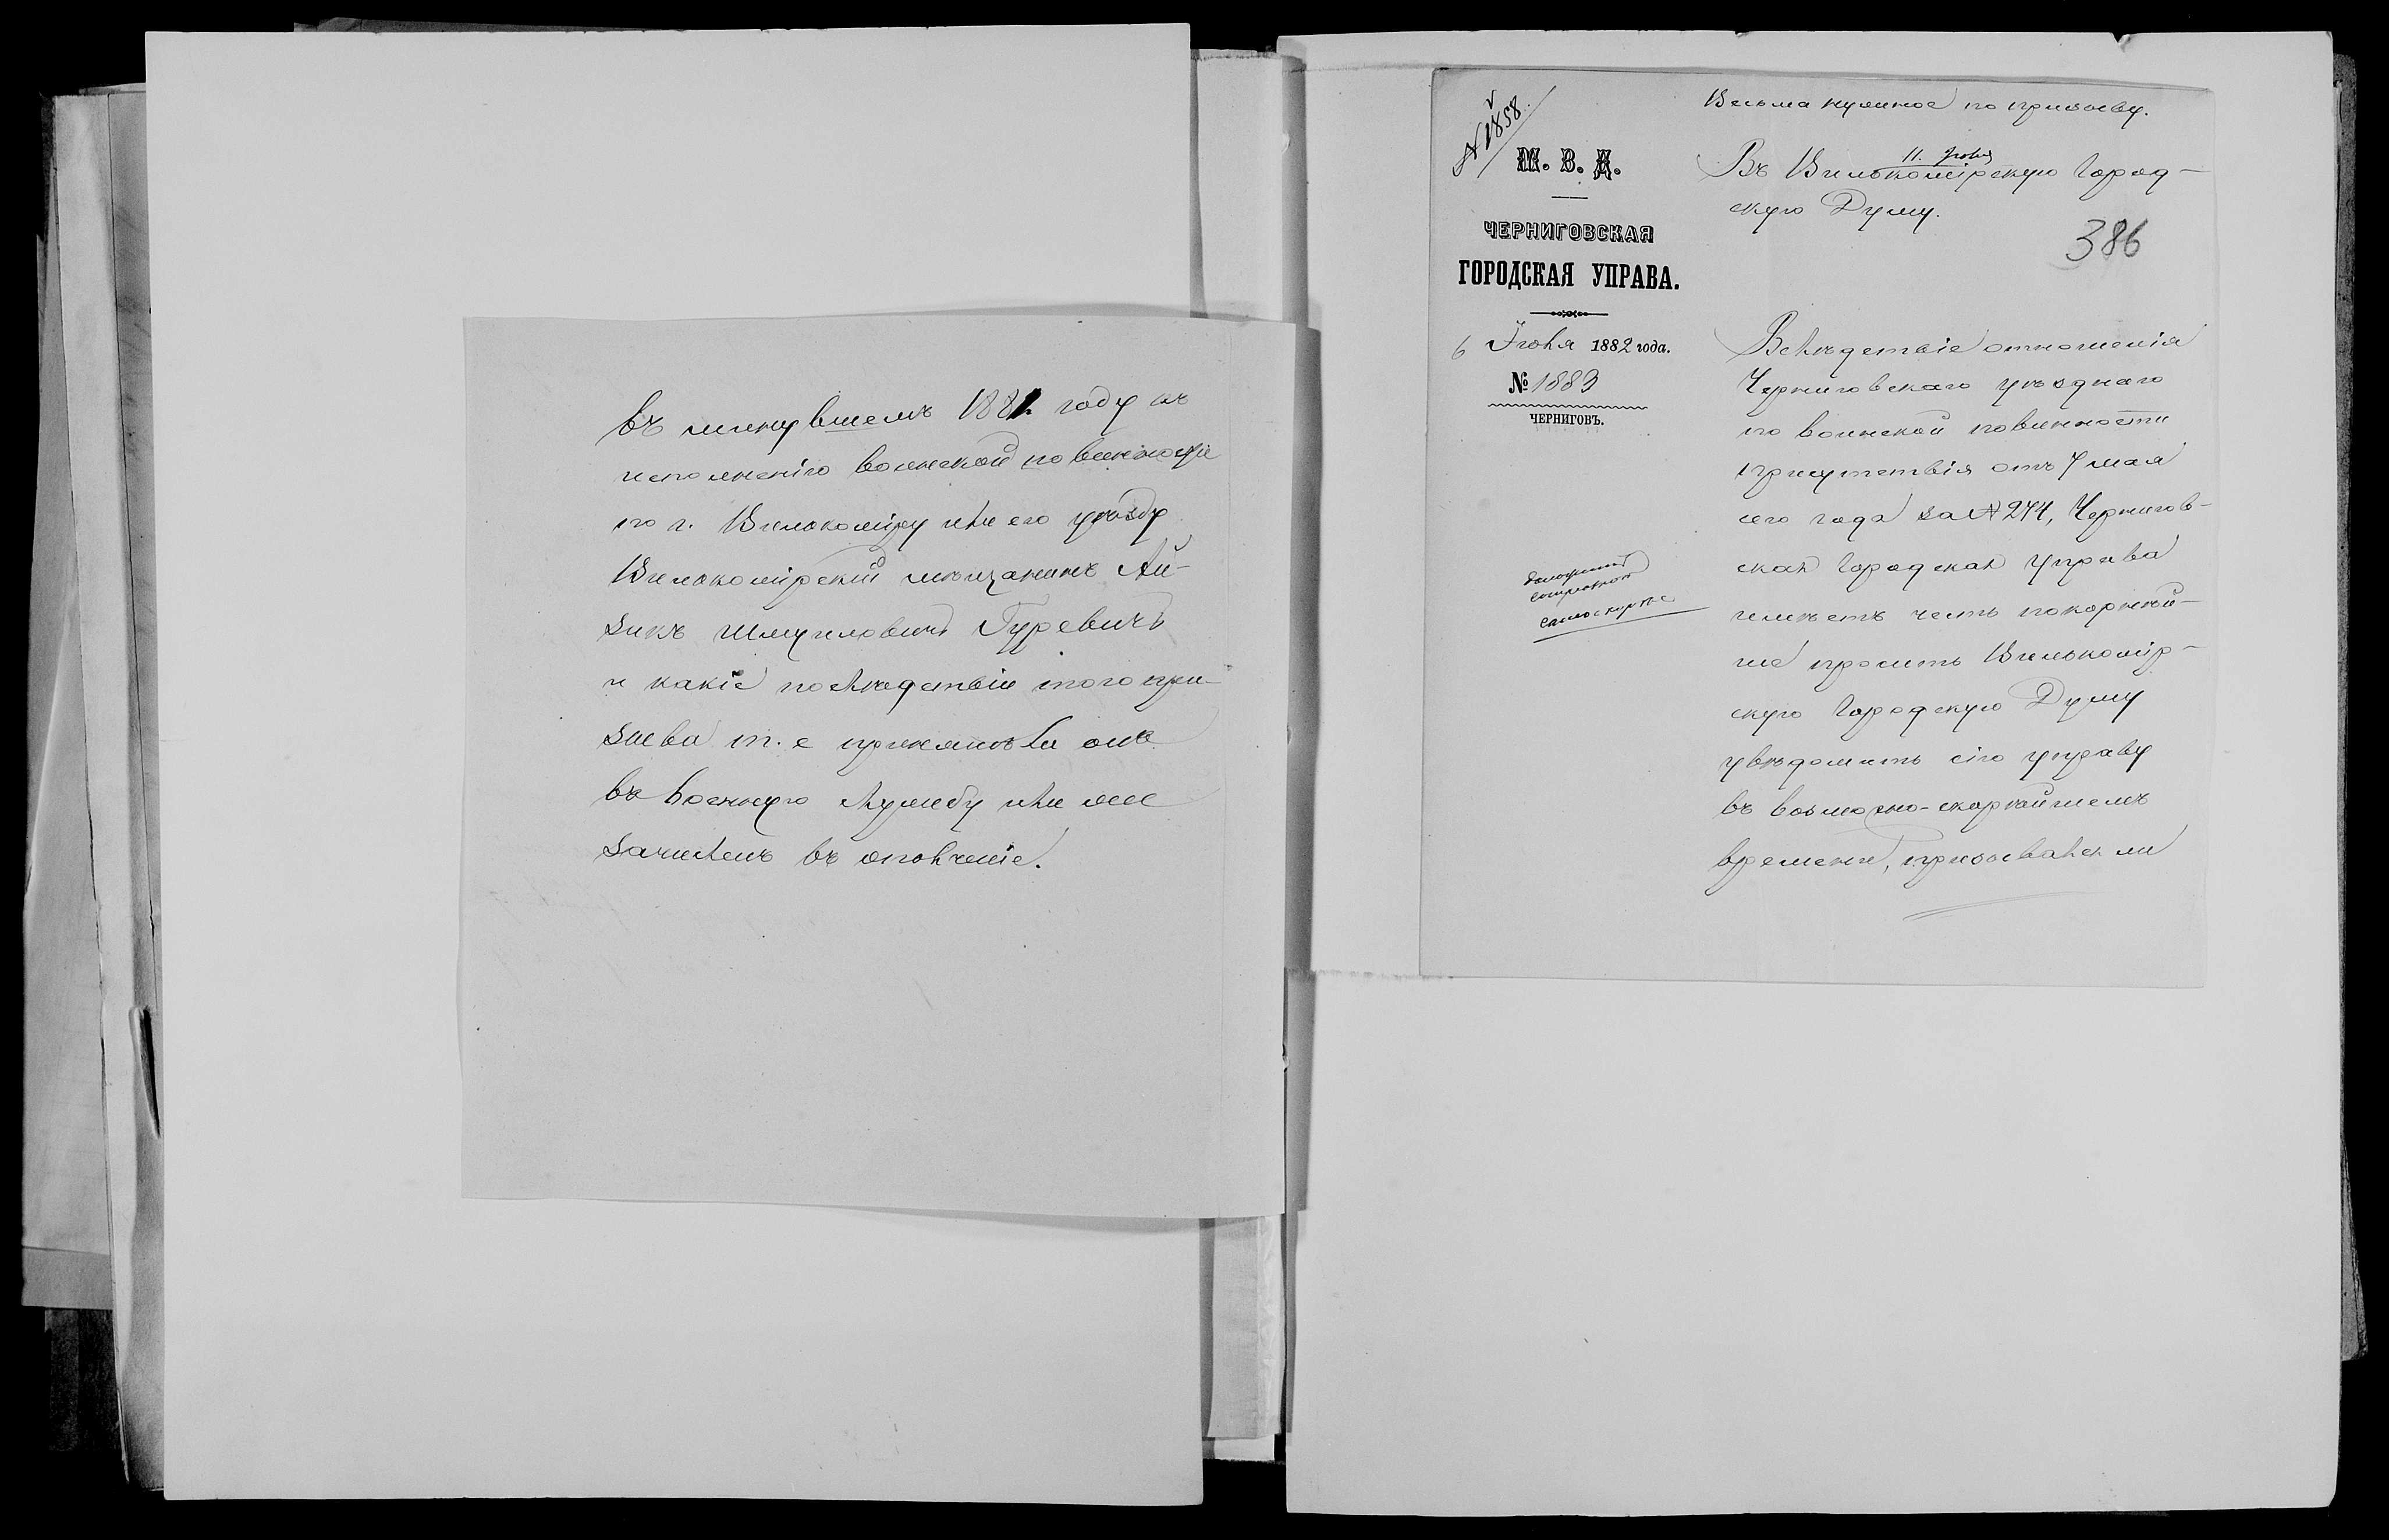 въ минувшемъ 1881 году къ
исполненію воинской повинности
по г. Вилькоміру или его уѣзду
Вилькомірскій мѣщанинъ Ай-
зикъ Шмуиловичъ Гуревичъ
и какіе послѣдствіи того при-
зыва т. е принятъ ли онъ
въ военную службу или же
зачисленъ въ ополченіе.
№ 1858.
М. В. Д.
ЧЕРНИГОВСКАЯ
ГОРОДСКАЯ УПРАВА.
6 Іюня 1882 года.
№ 1883
ЧЕРНИГОВЪ.
Весьма нужное по призыву.
11. Іюня
Въ Вилькомірскую Город-
скую Думу.
386
Вслѣдствіе отношенія
Черниговскаго уѣзднаго
по воинской повинности
присутствія отъ 7 мая
сего года за № 274, Чернигов-
ская Городская Управа
имѣетъ честь покорнѣй-
ше просить Вилькомір-
скую Городскую Думу
увѣдомить сію управу
въ возможно-скорѣйшемъ
времени, призывался ли